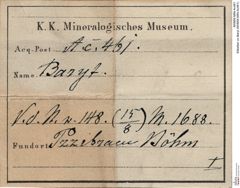 K. K. Mineralogisches Museum.
Acq.-Post A.c. 461.
Name: Baryt.
V. d. N. v. 148. (15/8) M. 1688.
Fundort: Przibram Böhm
I